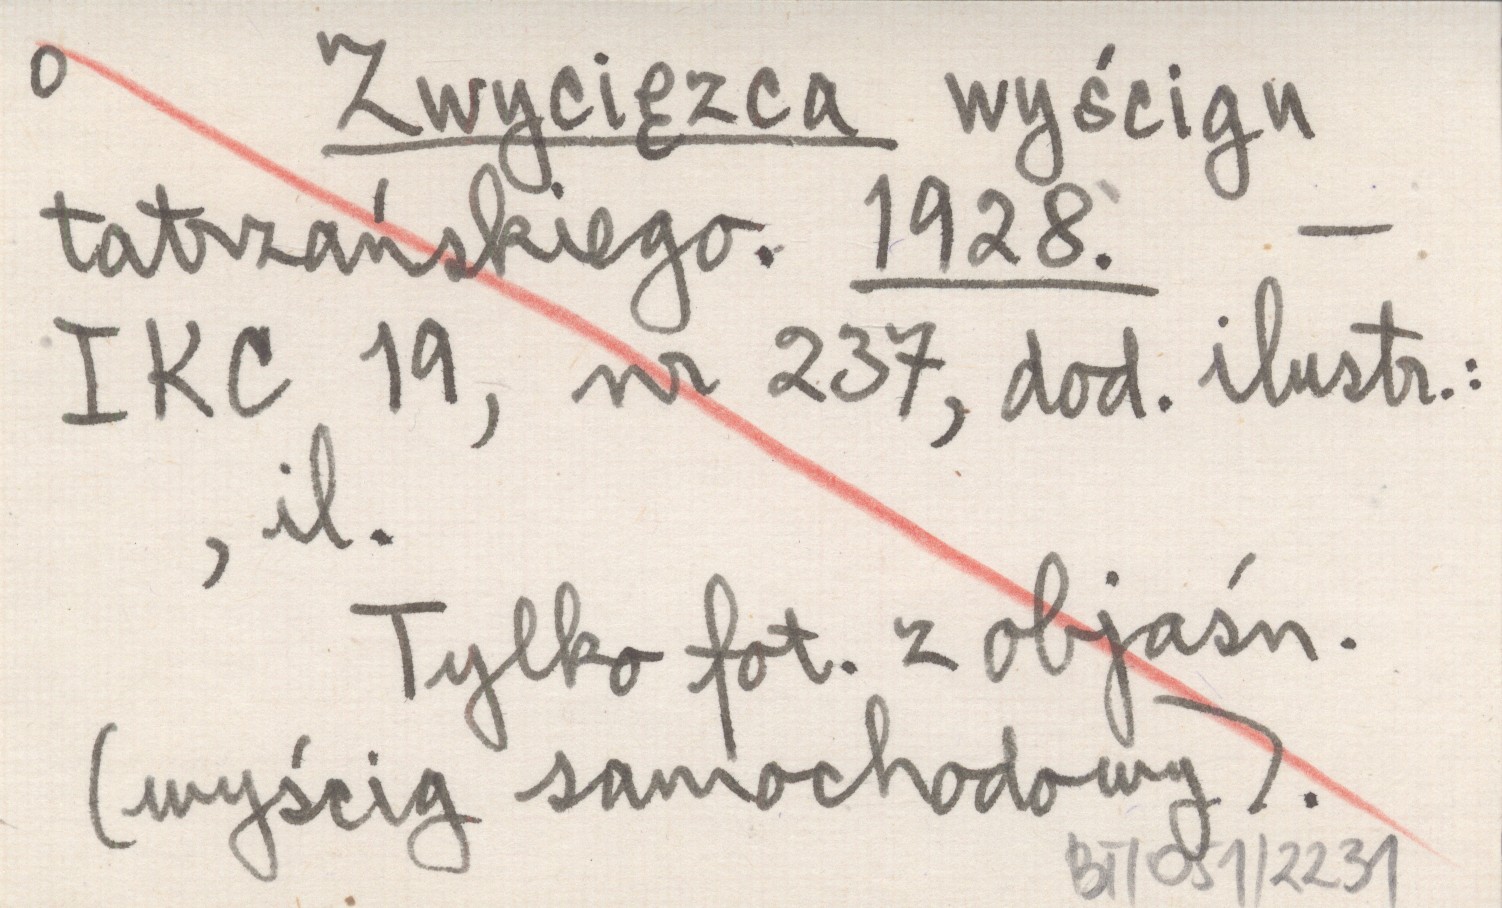 o Zwycięzca wyścigu
tatrzańskiego. 1928. —
IKC 19, nr 237, dod. ilustr.:
, il.
Tylko fot. z objaśn.
(wyścig samochodowy).
BT/051/2231